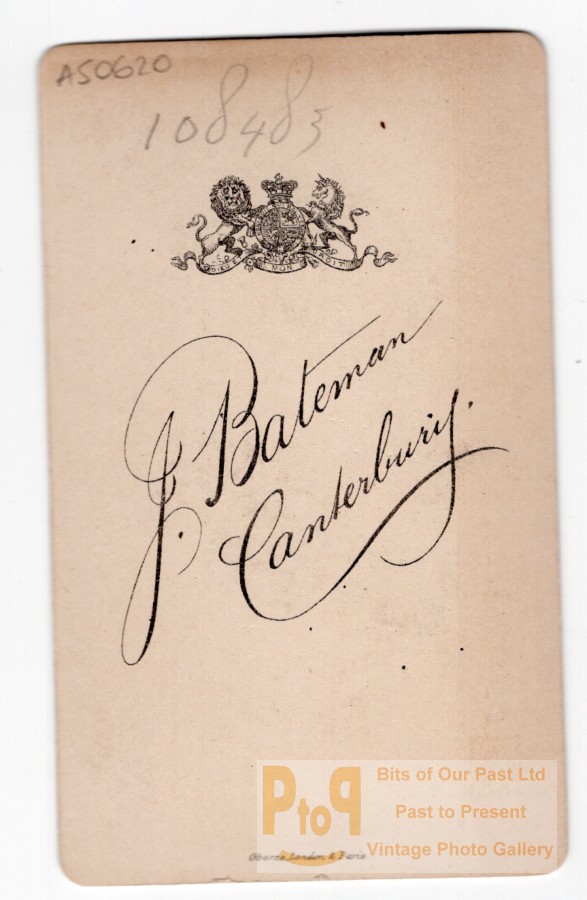 A50620
108483
DIEU ET MON DROIT
J. Bateman
Canterbury.
PtoP
Bits of Our Past Ltd
Past to Present
Vintage Photo Gallery
London & Paris